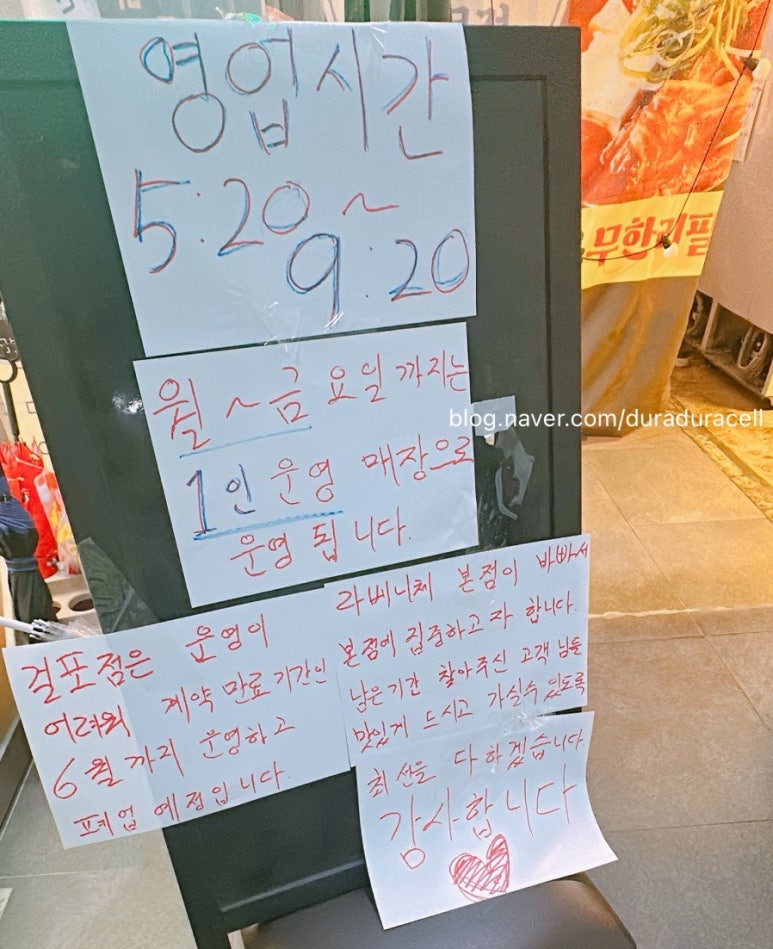 영업시간
5:20 ~
9:20
월 ~ 금 요일 까지는
1인 운영 매장으로
운영 됩니다.
걸포점은 운영이
어려워 계약 만료 기간인
6월 까지 운영하고
폐업 예정입니다.
라베니체 본점이 바빠서
본점에 집중하고자 합니다.
남은기간 찾아주신 고객님들
맛있게 드시고 가실수 있도록
최선을 다하겠습니다.
감사합니다
무한리필
blog.naver.com/duraduracell